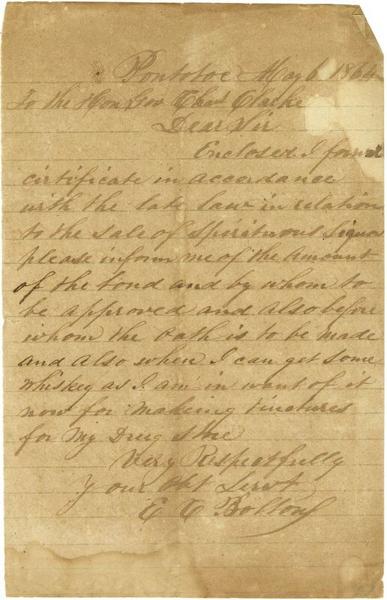 Pontotoc May 6 1864
To the Hon Gov Chas Clarke
Dear Sir
Enclosed I forward
certificate in accordance
with the late law in relation
to the sale of Spirituous Liquors
please inform me of the Amount
of the bond and by whom to
be approved and also before
whom the Oath is to be made
and also when I can get some
whiskey as I am in want of it
now for making tinctures
for My Drug Store
Very Respectfully
Your Obt Servt
E C Bolton